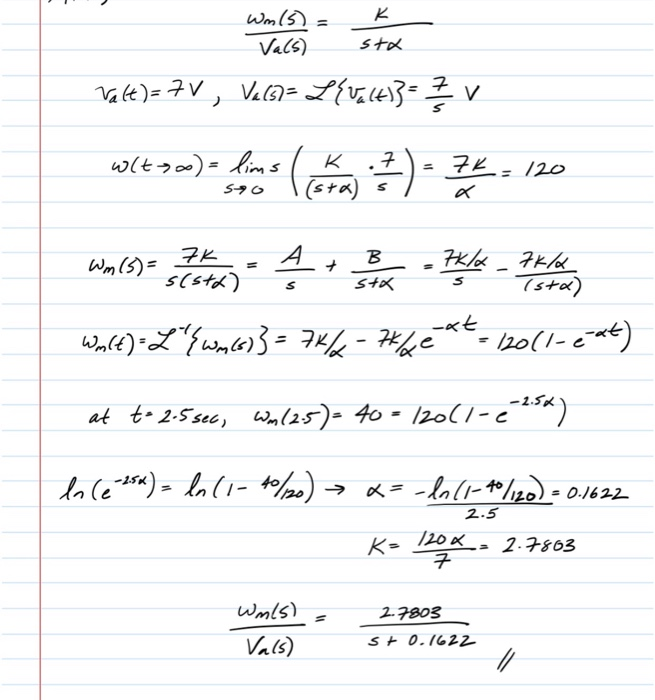 ωm(s)/Va(s) = K/(s+α)
va(t)=7V, Va(s)= ℒ{va(t)}= 7/s V
ω(t→∞)= lim s→0 s (K/(s+α) · 7/s) = 7K/α = 120
ωm(s)= 7K/(s(s+α)) = A/s + B/(s+α) = (7K/α)/s - (7K/α)/(s+α)
ωm(t)=ℒ⁻¹{ωm(s)}= 7K/α - 7K/α e^(-αt) = 120(1-e^(-αt))
at t=2.5sec, ωm(2.5)= 40 = 120(1-e^(-2.5α))
ln(e^(-2.5α))= ln(1- 40/120) → α= -ln(1-40/120)/2.5 = 0.1622
K= 120α/7 = 2.7803
ωm(s)/Va(s) = 2.7803/(s+0.1622) //